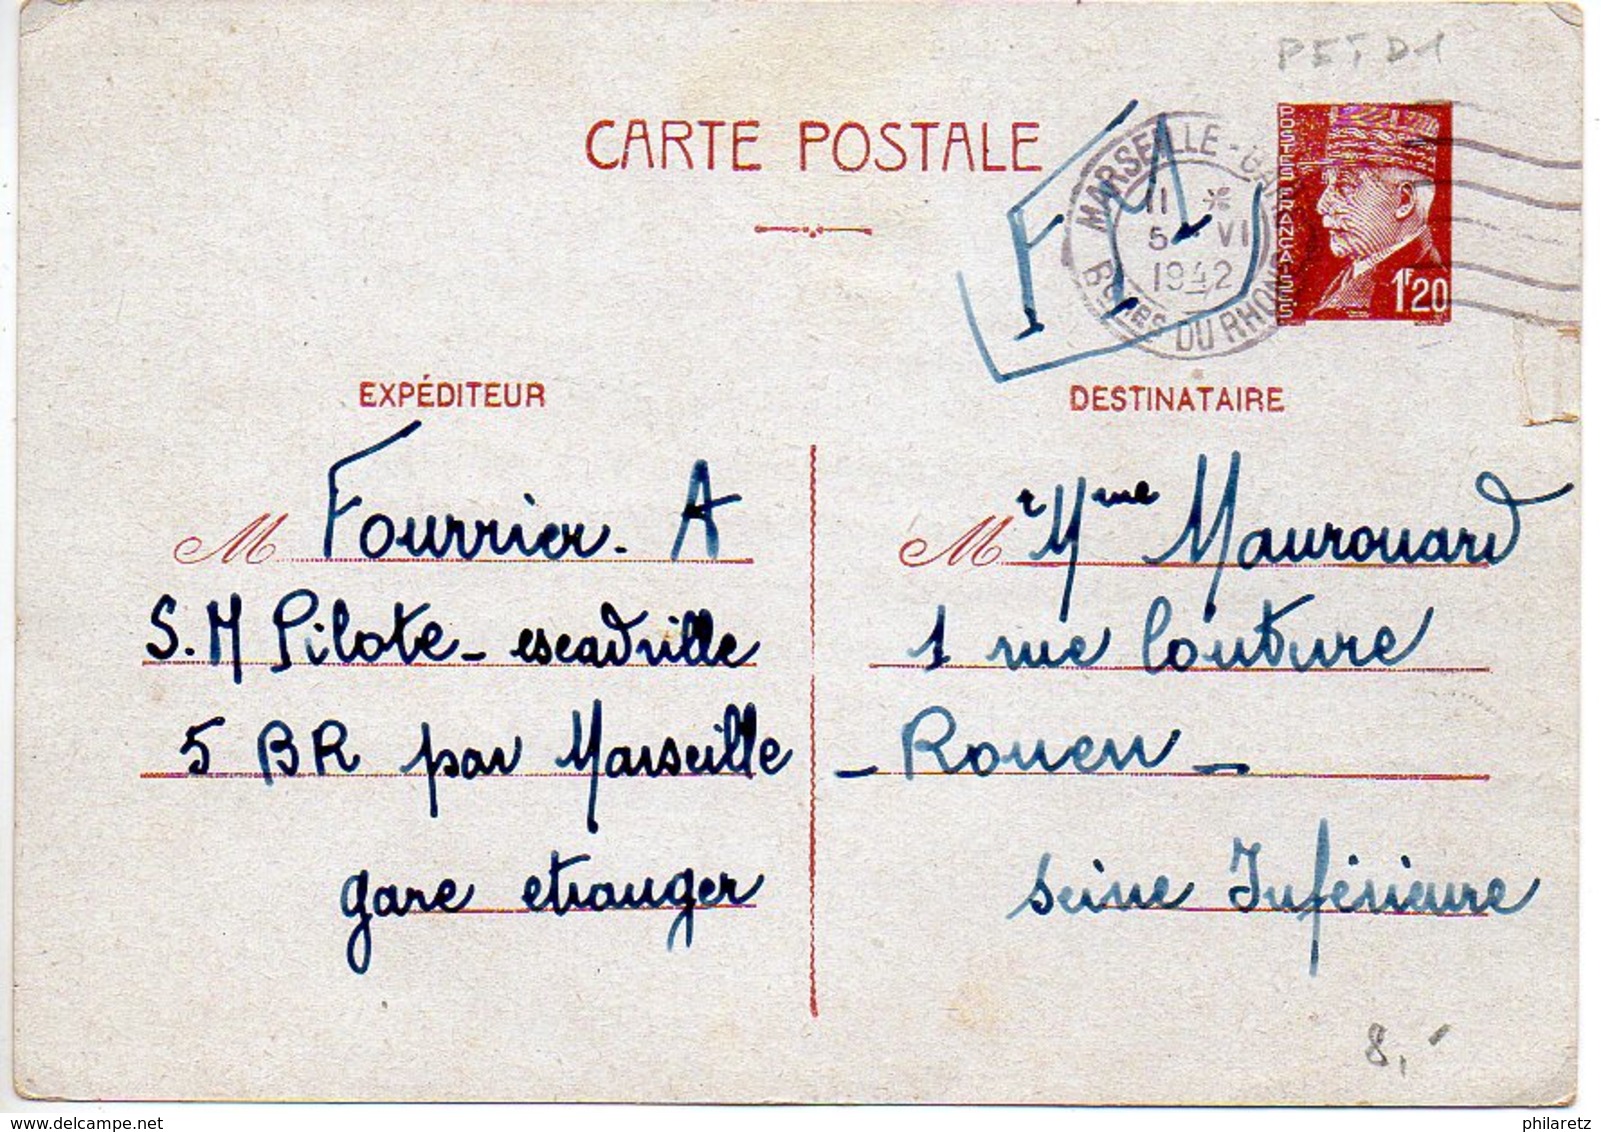 PET D1
CARTE POSTALE
F.A
MARSEILLE-GARE
11 *
5 - VI
1942
BCHES DU RHONE
POSTES FRANCAISES
1F20
EXPÉDITEUR
DESTINATAIRE
M Fourrier. A
S.M Pilote - escadrille
5 BR par Marseille
gare etranger
M r Mme Maurouard
1 rue Couture
- Rouen -
Seine Inférieure
8,-
www.delcampe.net
philaretz